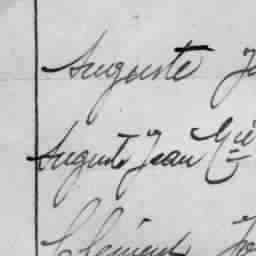 Auguste J
Auguste Jean
Clément